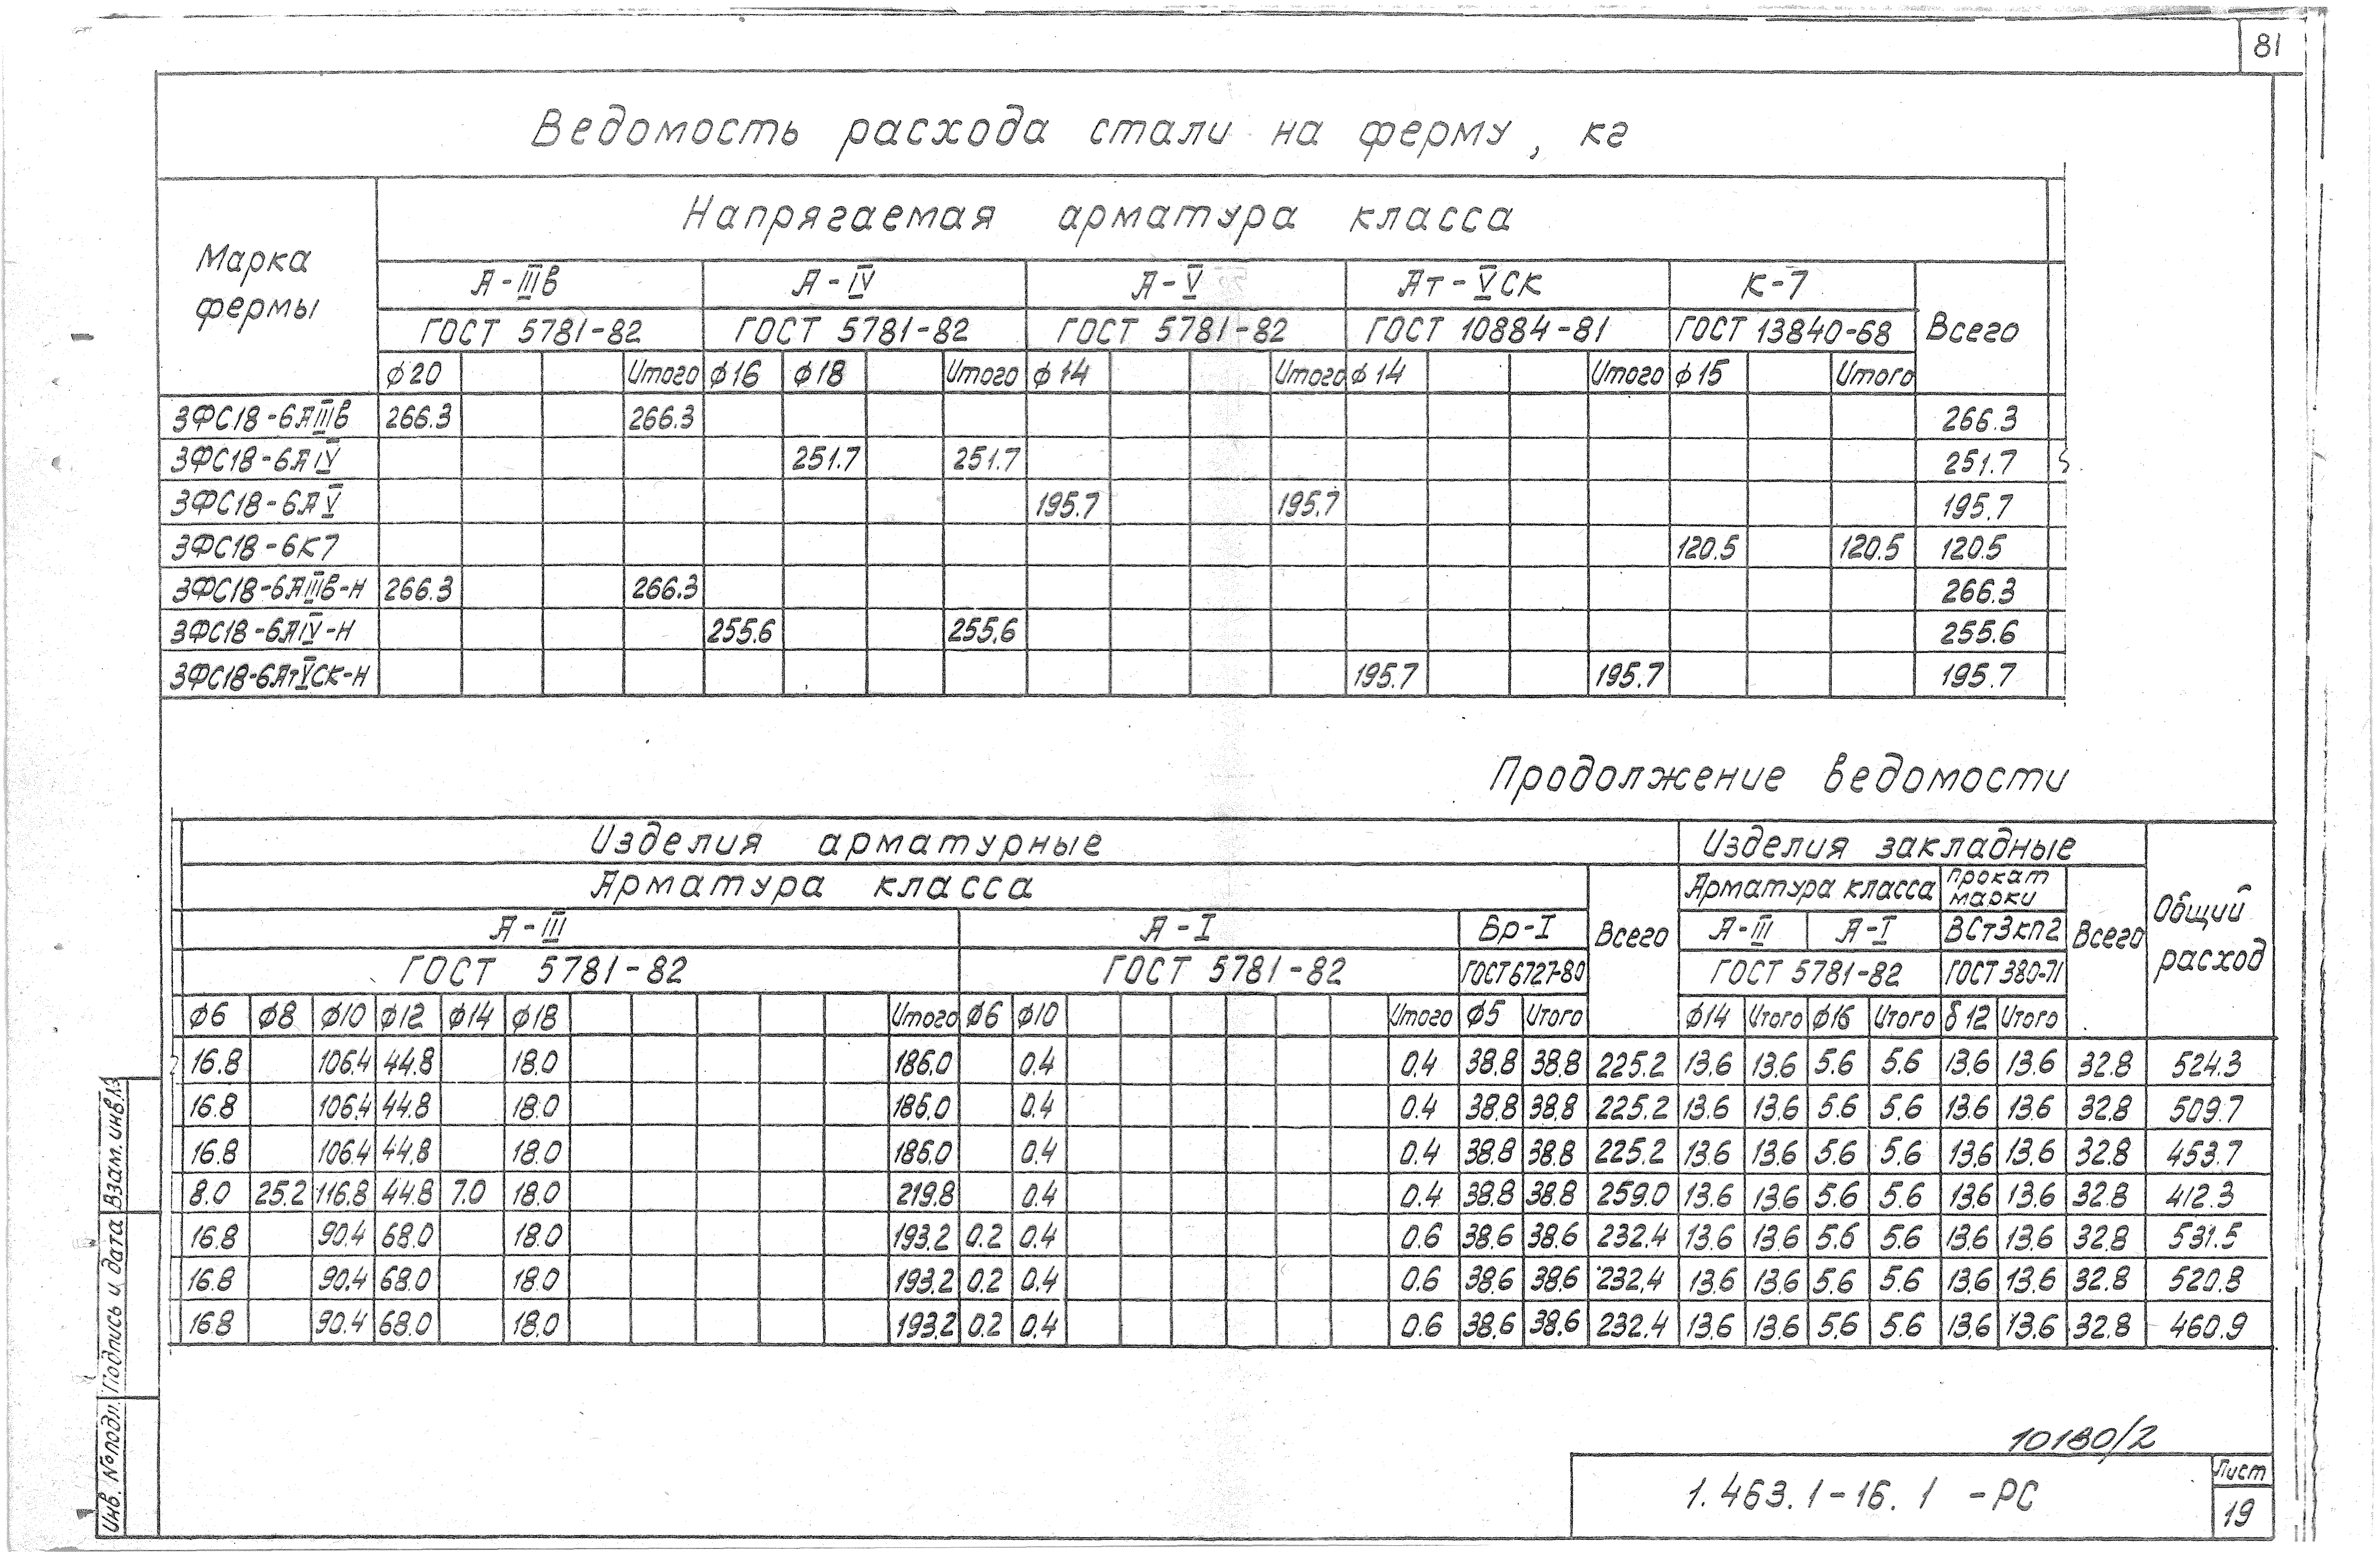 81
Ведомость расхода стали на ферму, кг
Марка фермы
Напрягаемая арматура класса
А-IIIв А-IV А-V Ат-VСК К-7 Всего
ГОСТ 5781-82 ГОСТ 5781-82 ГОСТ 5781-82 ГОСТ 10884-81 ГОСТ 13840-68
ф20 Итого ф16 ф18 Итого ф14 Итого ф14 Итого ф15 Итого
3ФС18-6АIIIв 266.3 266.3 266.3
3ФС18-6АIV 251.7 251.7 251.7
3ФС18-6АV 195.7 195.7 195.7
3ФС18-6К7 120.5 120.5 120.5
3ФС18-6АIIIв-Н 266.3 266.3 266.3
3ФС18-6АIV-Н 255.6 255.6 255.6
3ФС18-6АтVСК-Н 195.7 195.7 195.7
Продолжение ведомости
Изделия арматурные Изделия закладные Общий расход
Арматура класса Всего Арматура класса прокат марки Всего
А-III А-I Вр-I А-III А-I ВСт3кп2
ГОСТ 5781-82 ГОСТ 5781-82 ГОСТ 6727-80 ГОСТ 5781-82 ГОСТ 380-71
ф6 ф8 ф10 ф12 ф14 ф18 Итого ф6 ф10 Итого ф5 Итого ф14 Итого ф16 Итого δ12 Итого
16.8 106.4 44.8 18.0 186.0 0.4 0.4 38.8 38.8 225.2 13.6 13.6 5.6 5.6 13.6 13.6 32.8 524.3
16.8 106.4 44.8 18.0 186.0 0.4 0.4 38.8 38.8 225.2 13.6 13.6 5.6 5.6 13.6 13.6 32.8 509.7
16.8 106.4 44.8 18.0 186.0 0.4 0.4 38.8 38.8 225.2 13.6 13.6 5.6 5.6 13.6 13.6 32.8 453.7
8.0 25.2 116.8 44.8 7.0 18.0 219.8 0.4 0.4 38.8 38.8 259.0 13.6 13.6 5.6 5.6 13.6 13.6 32.8 412.3
16.8 90.4 68.0 18.0 193.2 0.2 0.4 0.6 38.6 38.6 232.4 13.6 13.6 5.6 5.6 13.6 13.6 32.8 531.5
16.8 90.4 68.0 18.0 193.2 0.2 0.4 0.6 38.6 38.6 232.4 13.6 13.6 5.6 5.6 13.6 13.6 32.8 520.8
16.8 90.4 68.0 18.0 193.2 0.2 0.4 0.6 38.6 38.6 232.4 13.6 13.6 5.6 5.6 13.6 13.6 32.8 460.9
Взам. инв.№
Подпись и дата
Инв. № подл.
10180/2
1.463.1-16.1 -РС
Лист
19